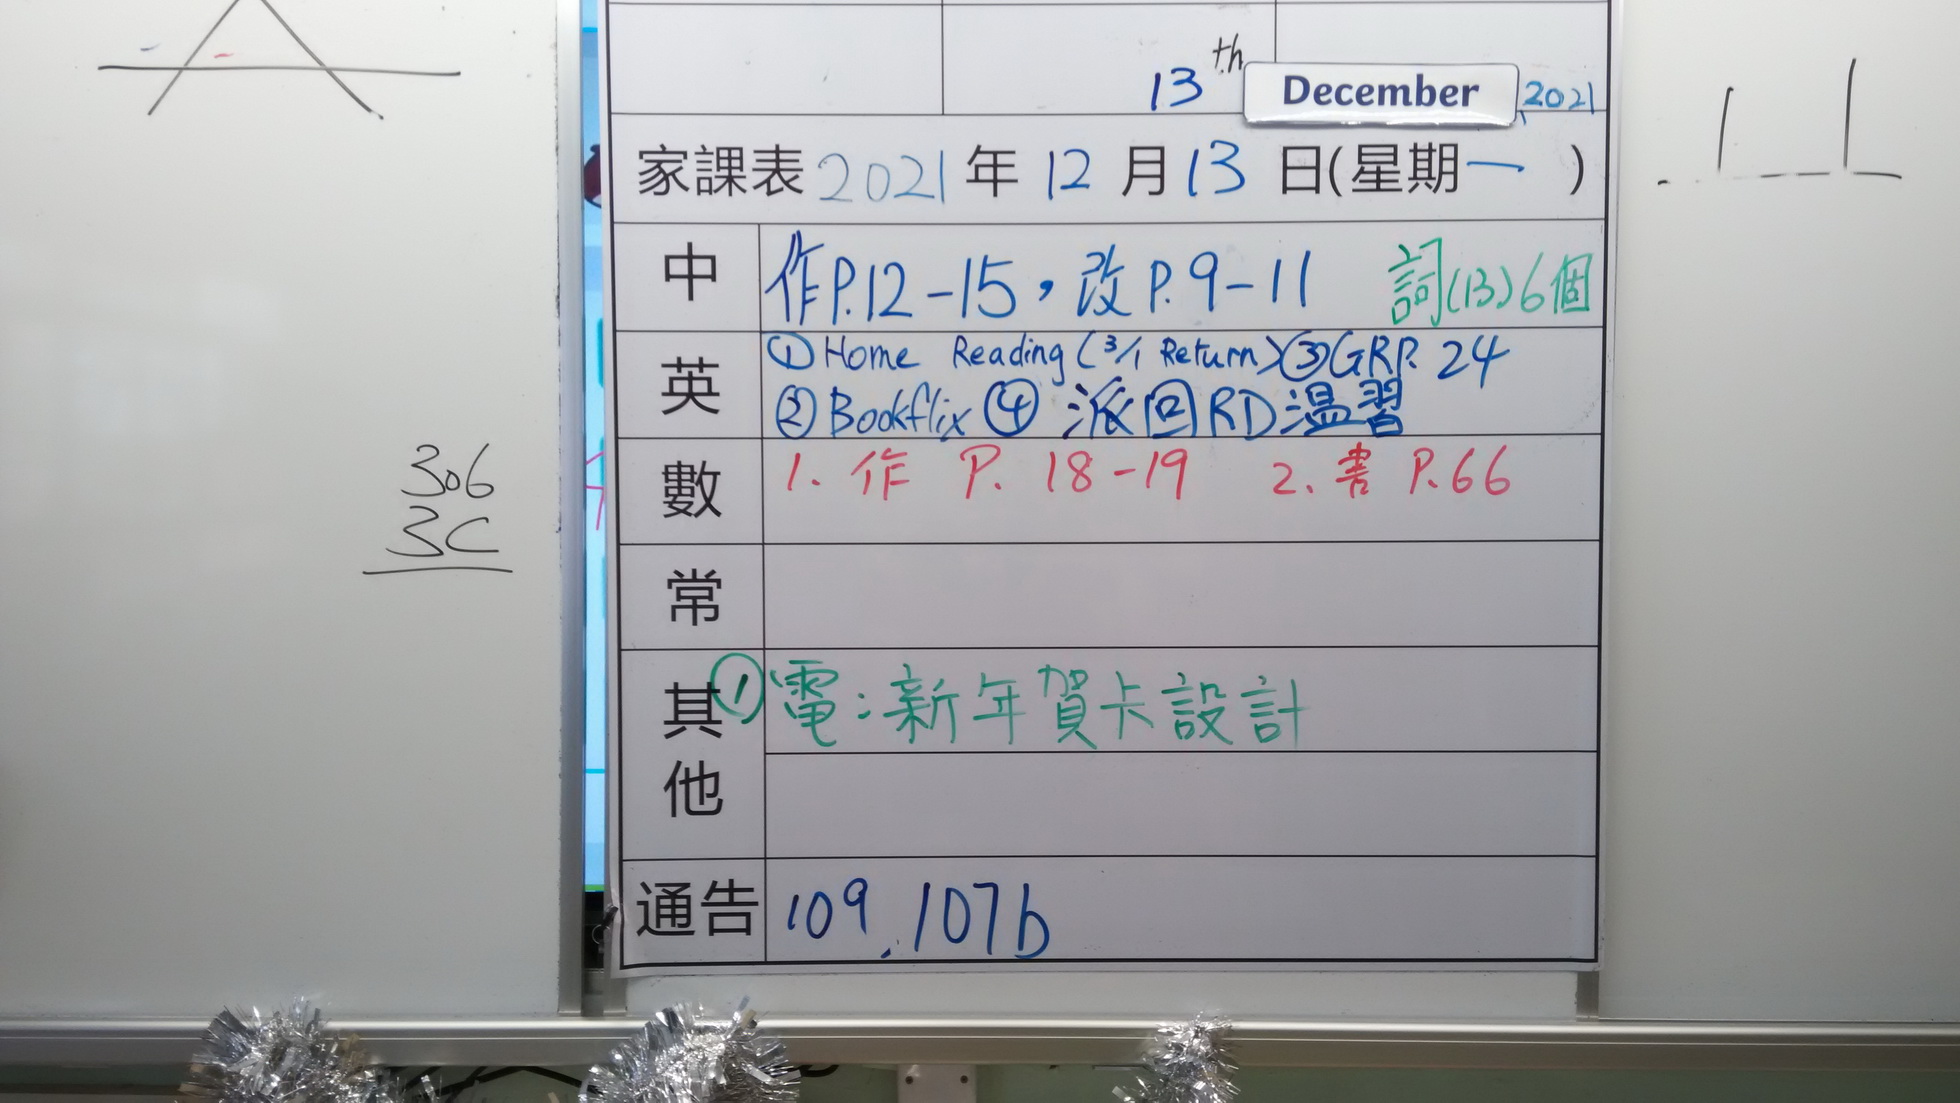 13th December 2021
家課表 2021 年 12 月 13 日(星期一 )
中 作P.12-15，改P.9-11 詞(13)6個
英 ①Home Reading (3/1 Return) ③GRP. 24
②Bookflix ④派回RD溫習
數 1. 作 P. 18-19 2. 書 P.66
常
其他 ①電:新年賀卡設計
通告 109, 107b
306
3C